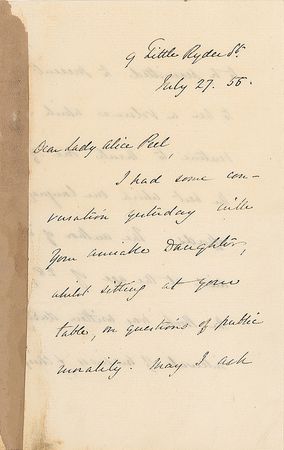 9 Little Ryder St.
July 27. 56.
Dear Lady Alice Peel,
I had some con-
versation yesterday with
your amiable Daughter,
whilst sitting at your
table, on questions of public
morality. May I ask